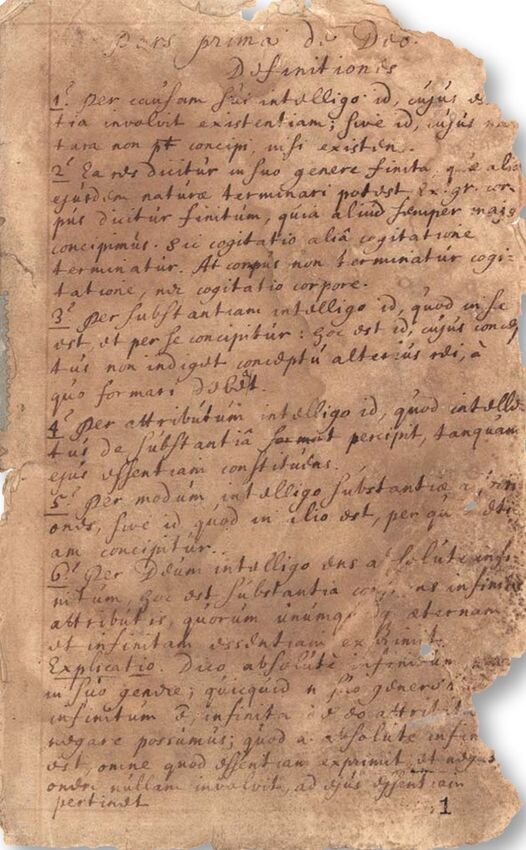 Pars prima de Deo.
Definitiones
1. Per causam sui intelligo id, cujus es
tia involvit existentiam; sive id, cujus na
tura non pt concipi, nisi existen
2. Ea res dicitur in suo genere finita, quæ aliâ
ejusdem naturæ terminari potest Ex. gr. cor
pus dicitur finitum, quia aliud semper majus
concipimus. Sic cogitatio aliâ cogitatione
terminatur. At corpus non terminatur cogi-
tatione, nec cogitatio corpore.
3. Per substantiam intelligo id, quod in se
est, et per se concipitur: hoc est id, cujus concep
tus non indiget conceptu alterius rei, à
quo formari debet.
4. Per attributum intelligo id, quod intellec
tus de substantiâ percipit, tanquam
ejus essentiam constituens.
5. Per modum intelligo substantiæ
ones, sive id quod in alio est, per qu eti
am concipitur.
6. Per Deum intelligo ens a solute infi
nitum, hoc est substantia con ns infinit
attributis, quorum unumq æternam
et infinitam essentiam exprimit.
Explicatio. Dico absolutè infinitum
in suo genere; quicquid n suo genere
infinitum ē, infinita de eo attributa
negare possumus; quod a absolute infin
est, omne quod essentiam exprimit, et negati
onem nullam involvit, ad ejus essentiam
pertinet
1